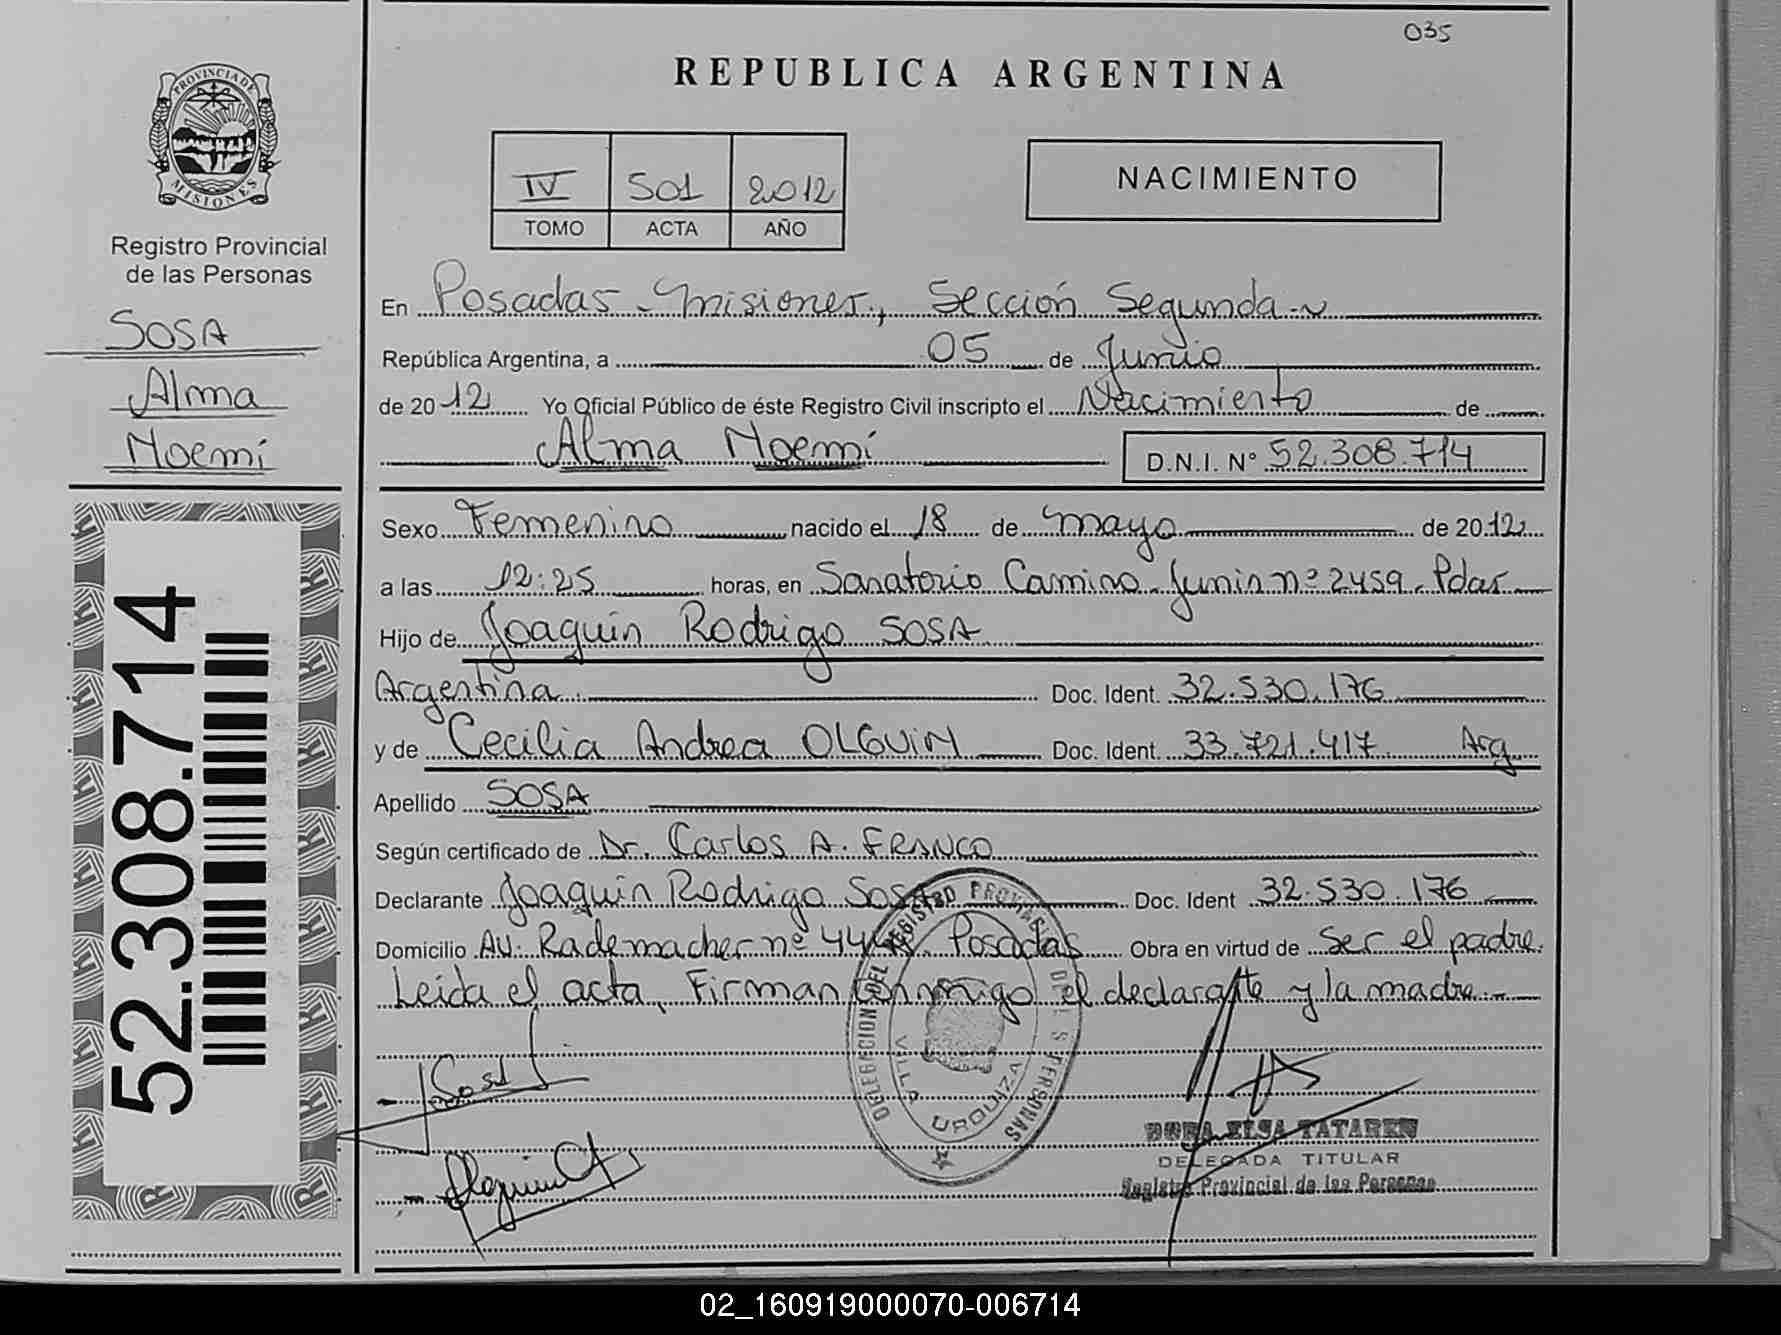 035
REPUBLICA ARGENTINA
PROVINCIA DE MISIONES
Registro Provincial
de las Personas
IV 501 2012
TOMO ACTA AÑO
NACIMIENTO
SOSA
Alma
Noemí
52.308.714
En Posadas - Misiones, Sección Segunda
República Argentina, a 05 de Junio
de 2012 Yo Oficial Público de éste Registro Civil inscripto el Nacimiento de
Alma Noemí D.N.I. N° 52.308.714
Sexo Femenino nacido el 18 de Mayo de 2012
a las 12:25 horas, en Sanatorio Camino - Junin nº 2459 - Pdas
Hijo de Joaquín Rodrigo SOSA
Argentina Doc. Ident. 32.530.176
y de Cecilia Andrea OLGUIN Doc. Ident. 33.721.417 Arg
Apellido SOSA
Según certificado de Dr. Carlos A. FRANCO
Declarante Joaquín Rodrigo Sosa Doc. Ident 32.530.176
Domicilio Av. Rademacher nº Posadas Obra en virtud de Ser el padre.
Leida el acta, Firman conmigo el declarante y la madre.-
DELEGACION DEL REGISTRO PROVINCIAL DE LAS PERSONAS
VILLA URQUIZA
Sosa
Olguin
DORA ELSA TATAREN
DELEGADA TITULAR
Registro Provincial de las Personas
02_160919000070-006714